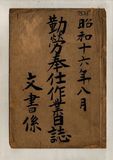 昭和十六年八月
勤勞奉仕作業日誌
文書係